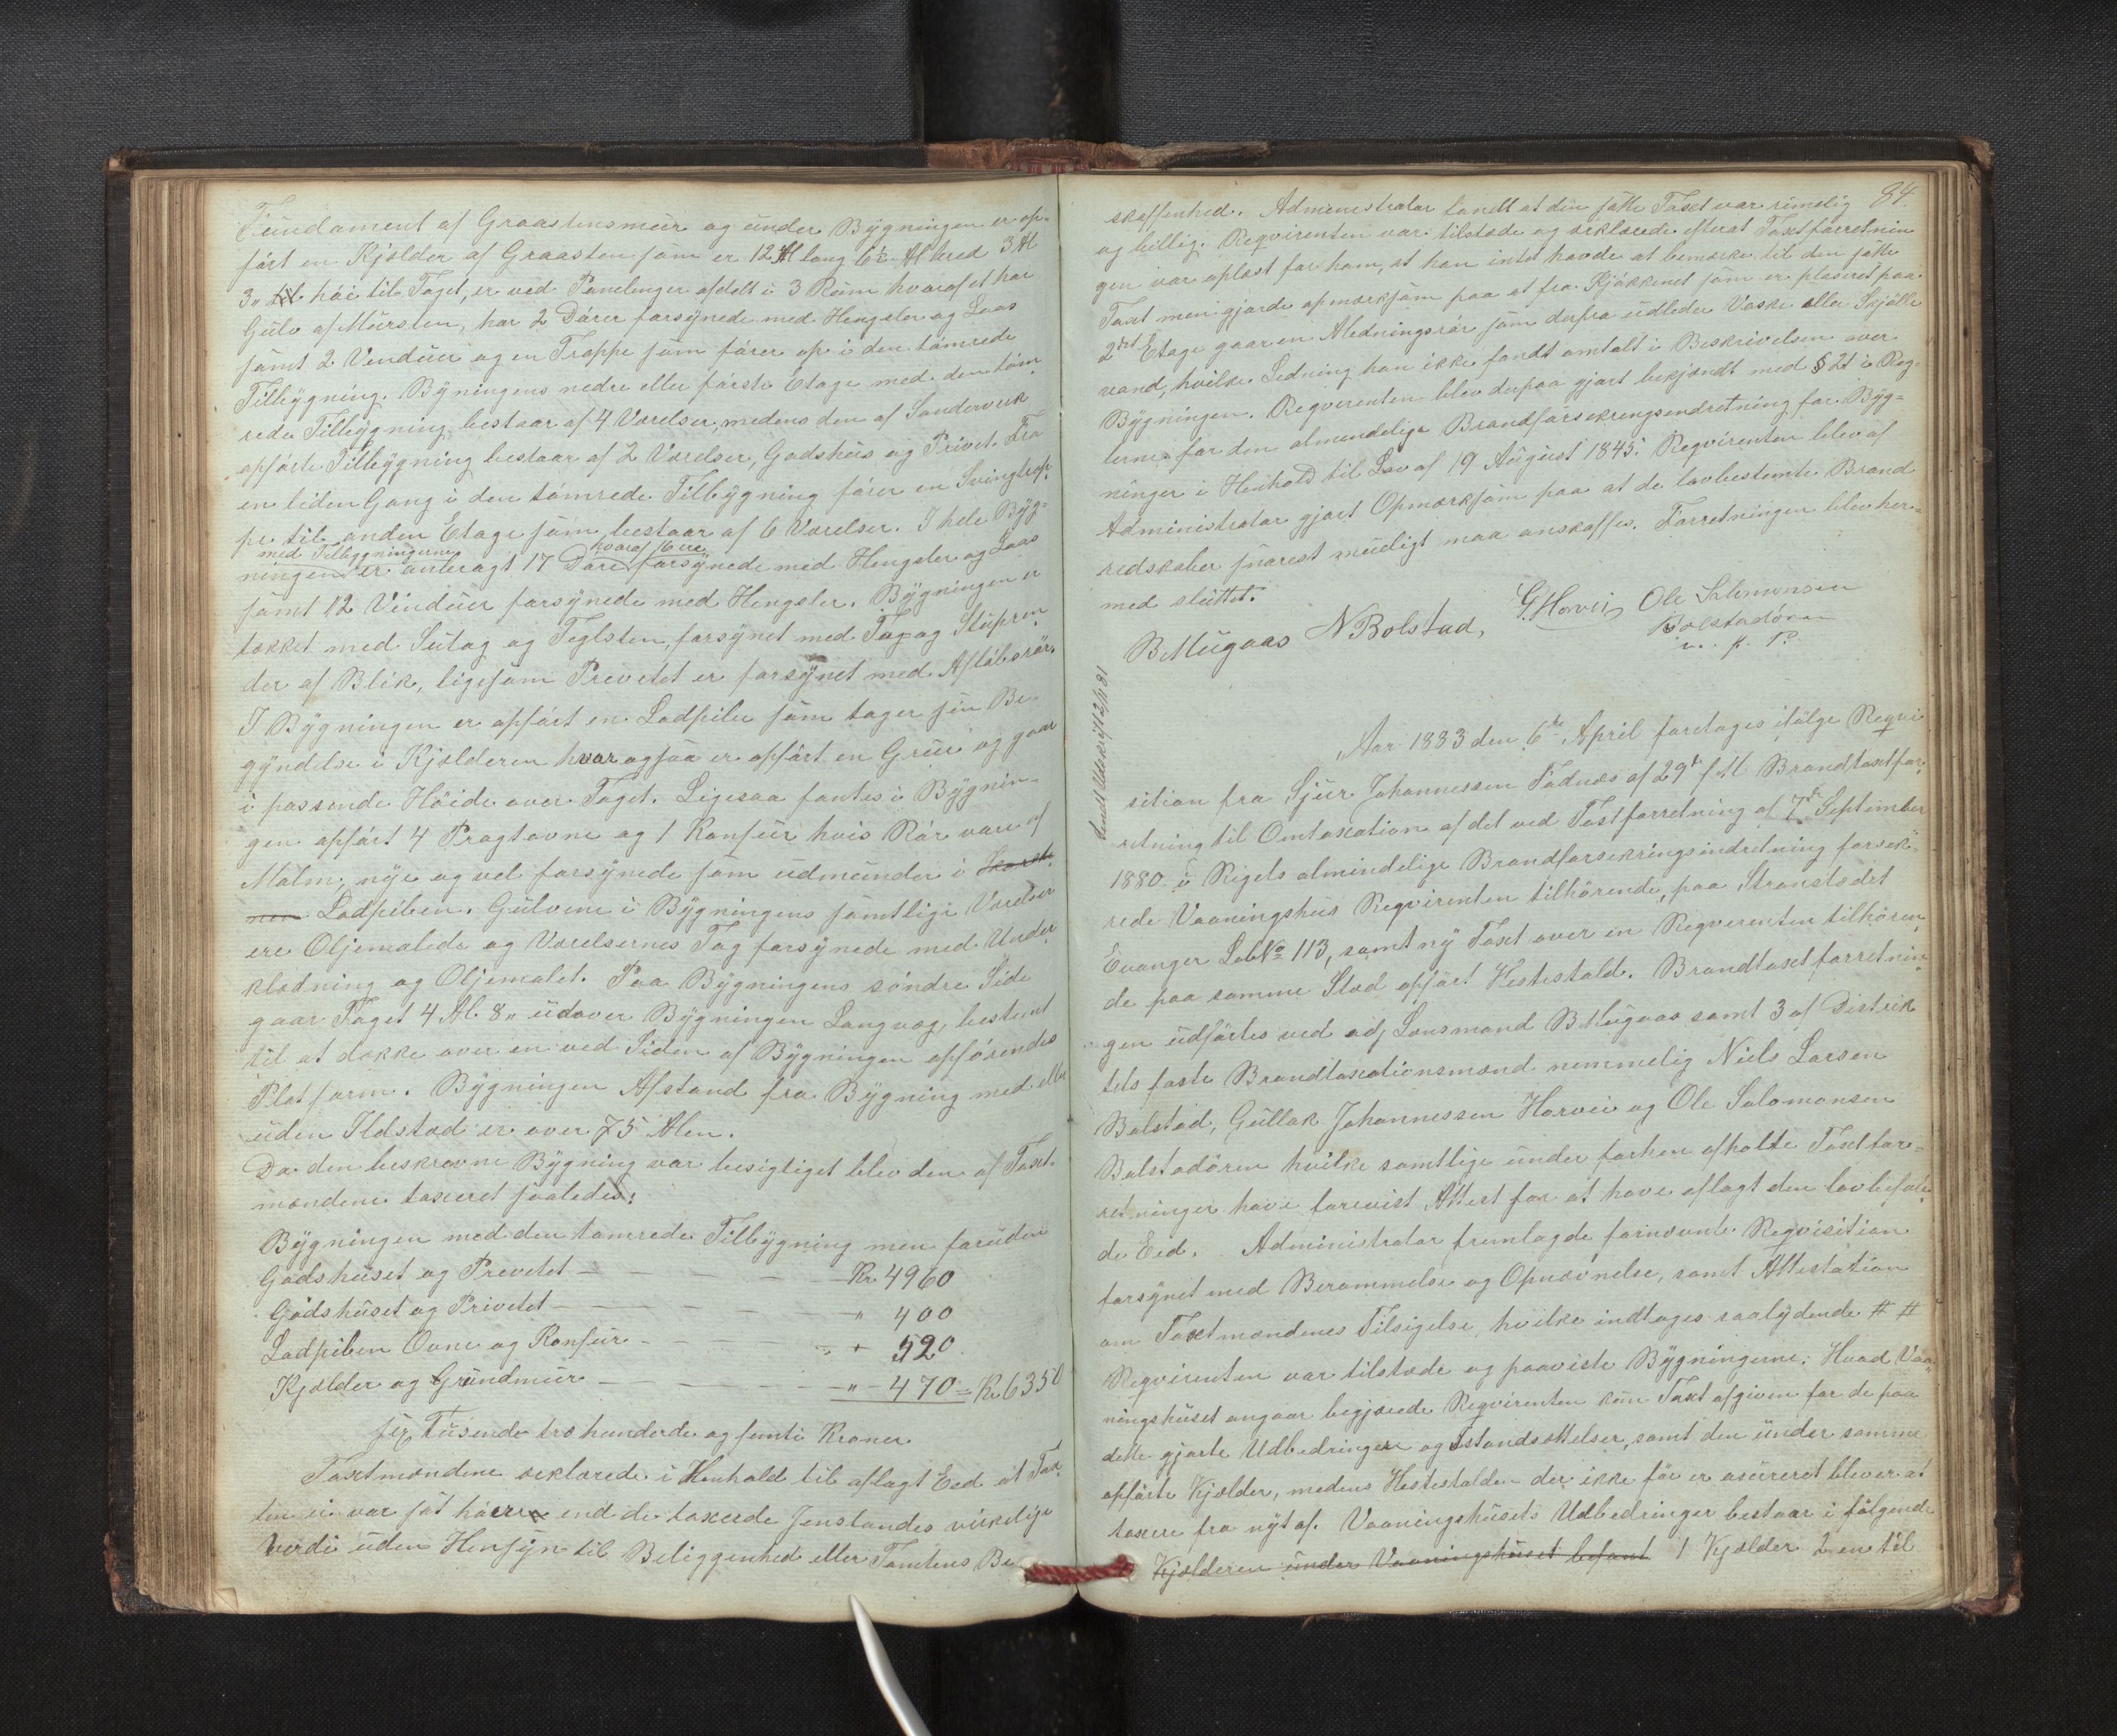 Fundament af Graastensmur og under Bygningen er op-
ført en Kjelder af Graasten som er 12 Al lang 6½ Al bred 3 Al
3" høi til Taget, er ved Panelinger afdelt i 3 Rum hvoraf et har
Gulv af Mursten, har 2 Dører forsynede med Hengsler og Laas
samt 2 Vinduer og en Trappe som fører op i den tømrede
Tilbygning. Bygningens nedre eller første Etage med den tøm-
rede Tilbygning bestaar af 4 Værelser, medens den af Sanderverk
opførte Tilbygning bestaar af 2 Værelser, Godshus og Privet. Fra
en liden Gang i den tømrede Tilbygning fører en Svingtrap-
pe til anden Etage som bestaar af 6 Værelser. I hele Byg-
med Tilbygningerne hvoraf 16 ere
ningen er anbragt 17 Døre forsynede med Hengsler og Laas
samt 12 Vinduer forsynede med Hengsler. Bygningen er
tækket med Sutag og Teglsten, forsynet med Tag og Stupren-
der af Blik, ligesom Prevetet er forsynet med Afløbsrør.
I Bygningen er opført en Ladpibe som tager sin Be-
gyndelse i Kjelderen hvor ogsaa er opført en Grue og gaar
i passende Høide over Taget. Ligesaa fantes i Bygnin-
gen opført 4 Pragtovne og 1 Komfur hvis Rør vare af
Malm, nye og vel forsynede som udmunder i
Ladpiben. Gulvene i Bygningens samtlige Værelser
ere Oljemalede og Værelsernes Tag forsynede med Under-
klædning og Oljemalet. Paa Bygningens søndre Side
gaar Taget 4 Al. 8" udover Bygningen Langvæg, bestemt
til at dække over en ved Siden af Bygningen opførendes
Platform. Bygningen Afstand fra Bygning med eller
uden Ildsted er over 75 Alen.
Da den beskrevne Bygning var besigtiget blev den af Taxt-
mændene taxeret saaledes:
Bygningen med den tømrede Tilbygning men foruden
Godshuset og Prevetet — Kr. 4960
Godshuset og Privetet — " 400
Ladpiben Ovne og Komfur — " 520
Kjælder og Grundmur — " 470 = Kr 6350
sex Tusende tre hundrede og femti Kroner.
Taxtmændene erklærede i Henhold til aflagt Eed at Tax-
ten ei var sat høiere end de taxerede Jenstandes virkelige
Verdi uden Hensyn til Beliggenhed eller Tomtens Be-
84.
skaffenhed. Administrator fandt at den satte Taxt var rimelig
og billig. Reqvirenten var tilstede og erklærede efterat Taxtforretnin-
gen var oplæst for ham, at han intet havde at bemærke til den satte
Taxt men gjorde opmærksom paa at fra Kjøkkenet som er plaseret paa
2det Etage gaar en Afledningsrør som derfra udleder Vaske eller Skjølle
vand, hvilke Ledning han ikke fandt omtalt i Beskrivelsen over
Bygningen. Reqvirenten blev derpaa gjort bekjendt med § 21 i Reg-
lerne for den almendelige Brandforsekringsendretning for Byg-
ninger i Henhold til Lov af 19 August 1845. Reqvirenten blev af
Administrator gjort Opmærksom paa at de lovbestemte Brand
redskaber snarest mueligt maa anskaffes. Forretningen blev her-
med sluttet.
B Mugaas N Bolstad, G. Horvei, Ole Salomonsen
Bolstadøren
m. p. P.
Aar 1883 den 6te April foretages ifølge Reqvi
sition fra Sjur Johannessen Fadnæs af 29de f M Brandtaxtfor-
retning til Omtaxation af det ved Taxtforretning af 7de September
1880 i Rigets almindelige Brandforsekringsindretning forsek-
rede Vaaningshus Reqvirenten tilhørende, paa Stranstedet
Evanger LøbNo 113, samt ny Taxt over en Reqverenten tilhøren
de paa samme Sted opført Hestestald. Brandtaxtforretnin
gen udførtes ved adj Lensmand B Mugaas samt 3 af Distrik
tets faste Brandtaxationsmænd nemmelig Niels Larsen
Bolstad, Gullak Johannessen Horvei og Ole Salomonsen
Bolstadøren hvilke samtlige under forhen afholdte Taxtfor-
retninger have forevist Attest for at have aflagt den lovbefale
de Eed. Administrator fremlagde fornævnte Reqvisition
forsynet med Berammelse og Opnævnelse, samt Attestation
om Taxtmændenes Tilsigelse, hvilke indtages saalydende # #
Reqvirenten var tilstede og paaviste Bygningerne; Hvad Vaa
ningshuset angaar begjærede Reqvirenten kun Taxt afgiven for de paa
dette gjorte Udbedringer og Istandsættelser, samt den under samme
opførte Kjælder, medens Hestestalden der ikke før er asureret blever at
taxere fra nyt af. Vaaningshusets Udbedringer bestaar i følgende
Kjælderen under Vaaningshuset befant 1 Kjælder 2 en til